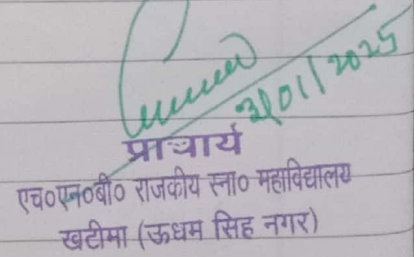 31/01/2025
प्राचार्य
एच०एन०बी० राजकीय स्ना० महाविद्यालय
खटीमा (ऊधम सिंह नगर)